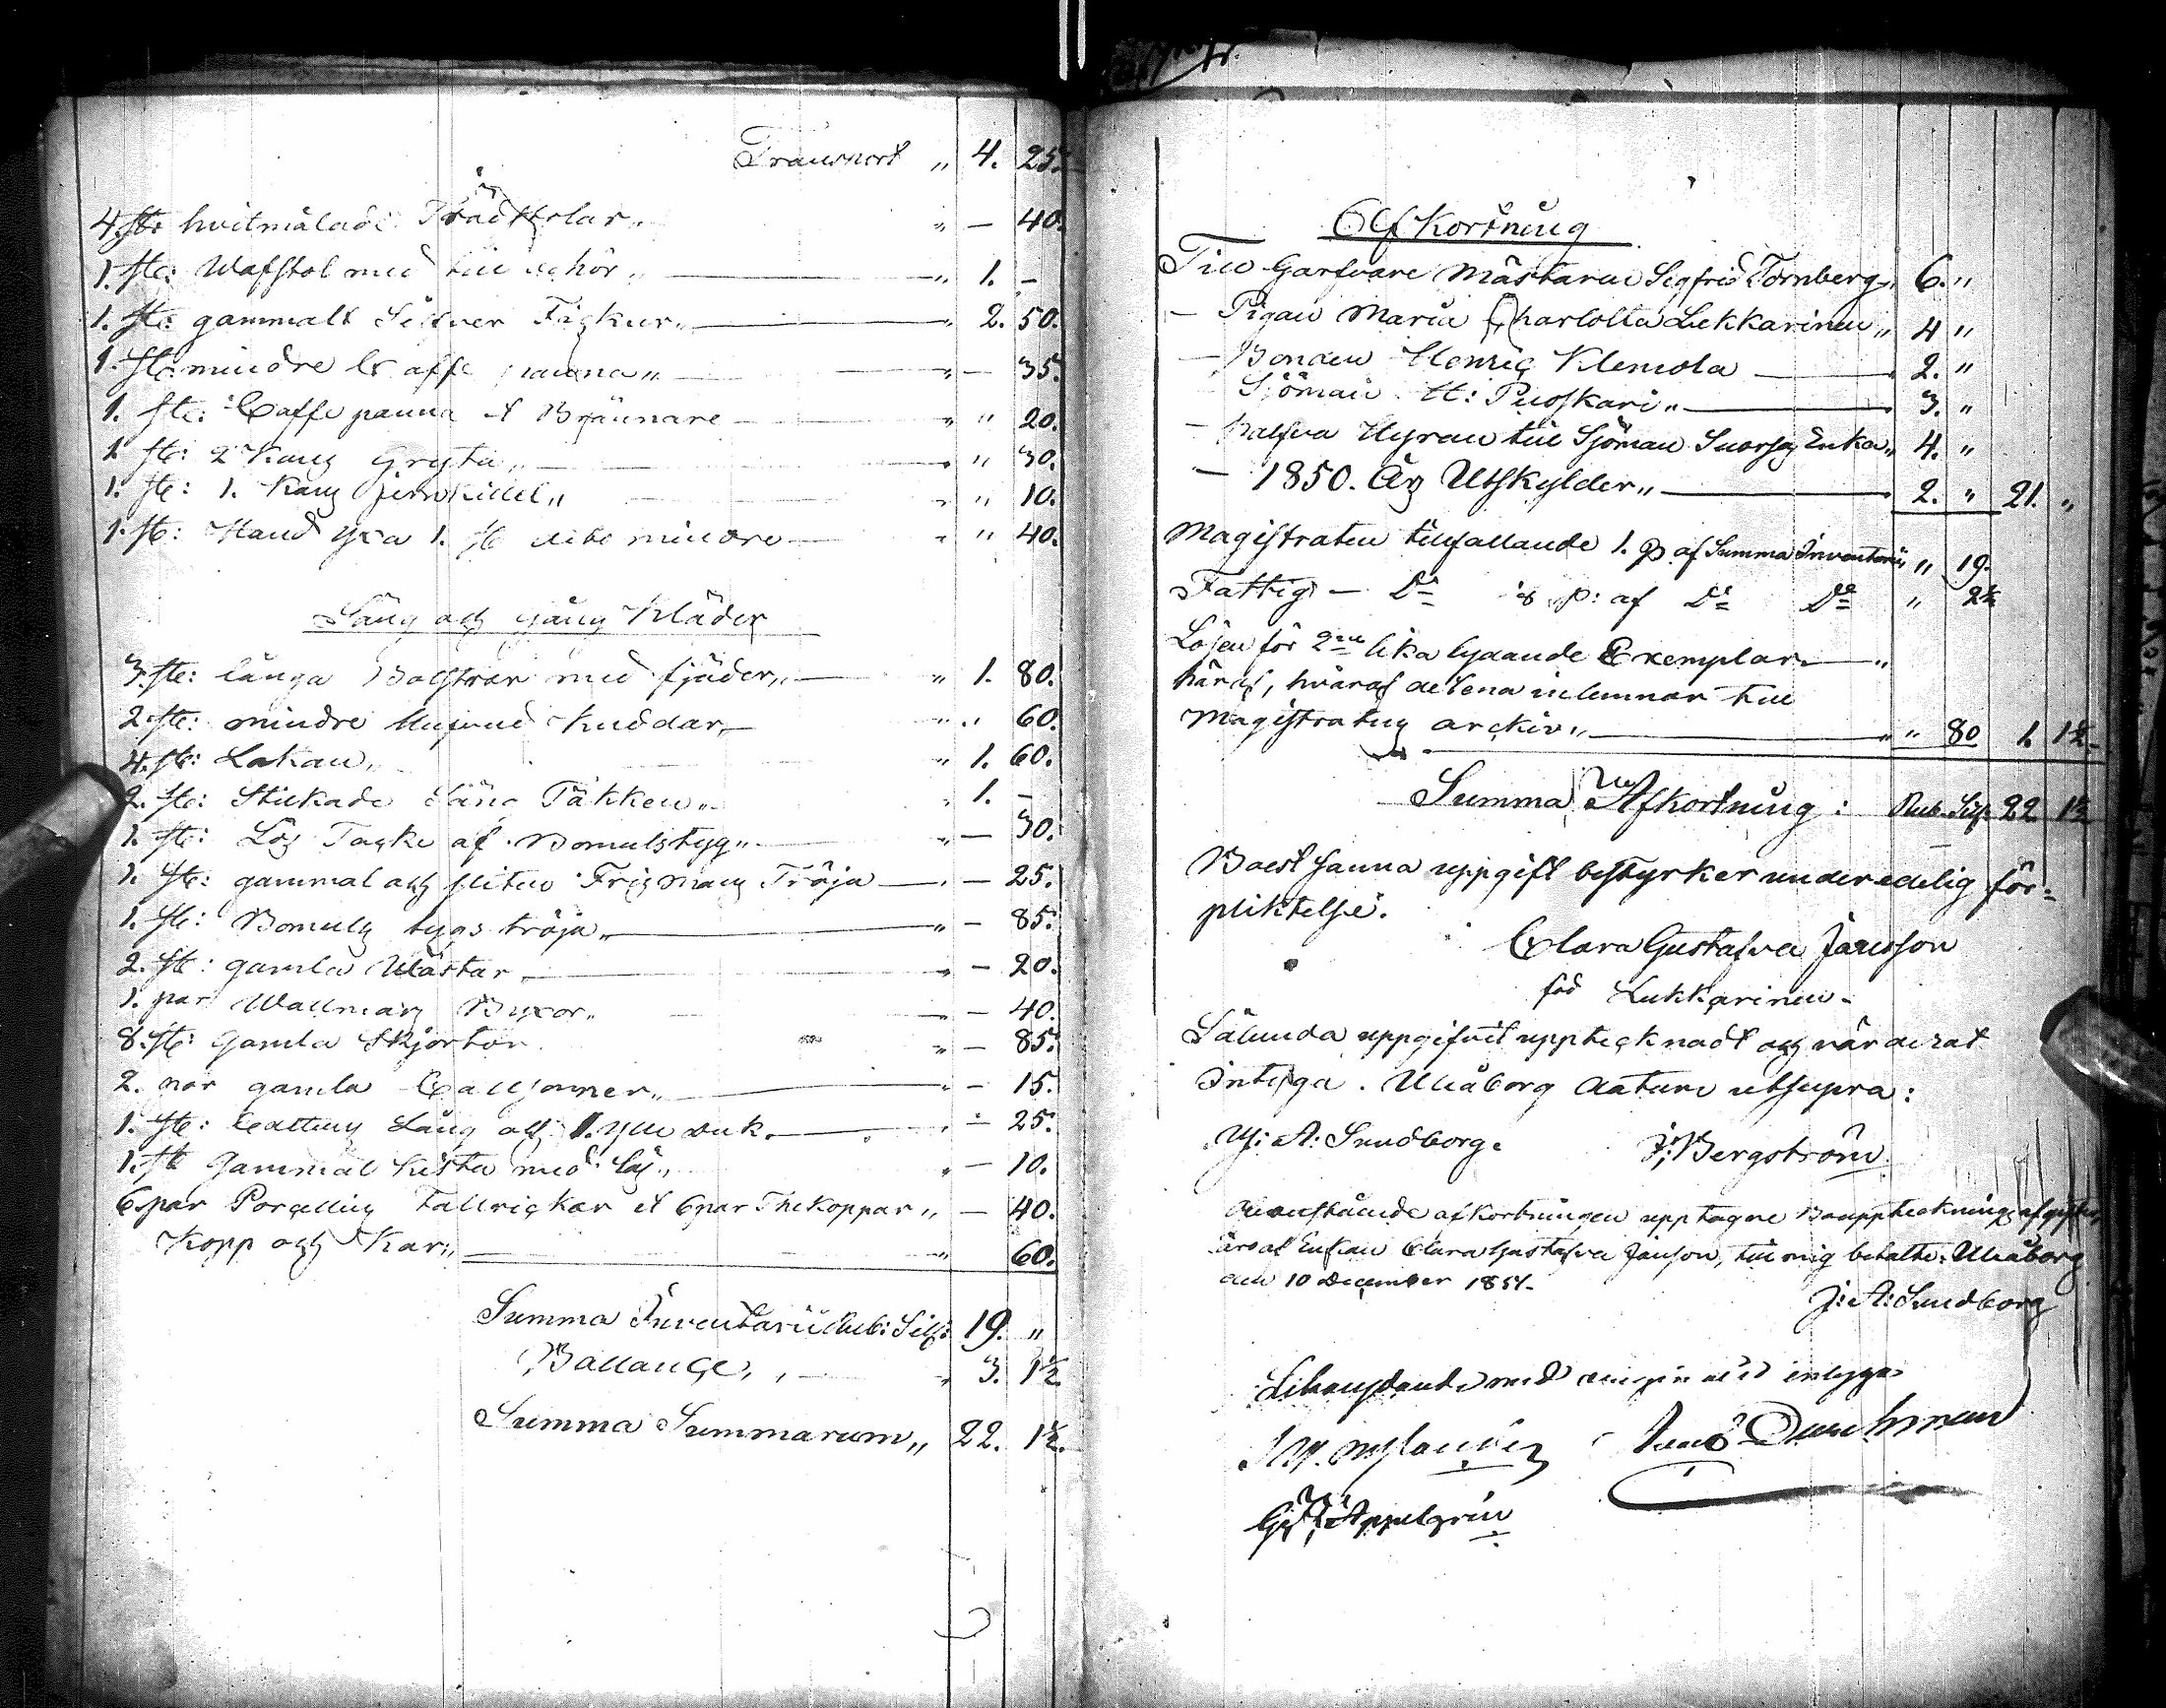 Transport „ 4. 25.
4. st: hvitmålade Trädstolar „ — 40.
1. st: Wäfstol med till behör „ 1. —
1. st: gammalt Silfver Fickur „ 2. 50.
1. st: mindre Caffe panna „ — 35.
1. st: Caffe panna et Brännare „ „ 20.
1 st: 2 Kans Gryta „ „ 30.
1. st: 1. Kans jernkittel „ „ 10.
1. st: Hand yxa 1. st dito mindre „ „ 40.
Säng och gång Kläder
3. st: långa Bolstrar med fjäder „ 1. 80.
2. st: mindre Hufvud Kuddar „ „ 60.
4. st: Lakan „ 1. 60.
2. st: Stickade Säng Täkken „ 1. —
1. st: Lös Täcke af Bomulstyg „ — 30.
1. st: gammal och sliten Tröja — 25.
1. st: Bomuls tygs tröja „ — 85.
2. st: gamla Wästar „ — 20.
1. par Wallmans Buxor „ — 40.
8. st: gamla Skjortor „ — 85.
2. par gamla Callsonger „ — 15.
1. st: Cattuns Säng och 1. ylle duk. — 25.
1. st Gammal Kista med lås „ — 10.
6 par Porcelins Tallrickar et 6 par The Koppar „ — 40.
Kopp och Kar „ 60.
Summa Inventarii Rub: Silf: 19. „
Ballance, „ 3. 1½
Summa Summarum „ 22. 1½.
Afkortning
Till Garfvare Mästaren Sigfrid Tornberg „ 6. „
— Pigan Maria Charlotta Lukkarinen „ 4 „
— Bonden Henric Klemola 2. „
Sjöman H: Puoskari „ 3. „
— halfva Hyran till Sjöman Enka „ 4. „
— 1850. Års Utskylder „ 2. „ 21. „
Magistraten tillfallande 1. p. af Summa Inventarii „ 19.
Fattig — Do ⅛ p: af Do Do „ 2½
Lösen för 2ne lika lydande Exemplar „
häraf, hvaraf det ena inlemnar till
Magistratens arckiv „ „ 80 1. 1½
Summa Afkortning: Rub. Silf. 22 1½
Boets sanna uppgift bestyrker under edelig för-
pliktelse.
Clara Gustafva Jansson
föd Lukkarinen.
Sålunda uppgifvit uppteknadt och värderat
intyga. Uleåborg datum utsupra:
J: A: Sundborg. J: Bergström
Ofvanstående afkortningen upptagne Bouppteckningsafgifter,
äro af Enkan Clara Gustafva Janson, till mig betalte. Uleåborg
den 10 December 1851.
J: A: Sundborg
Likalydande med originalet intyga